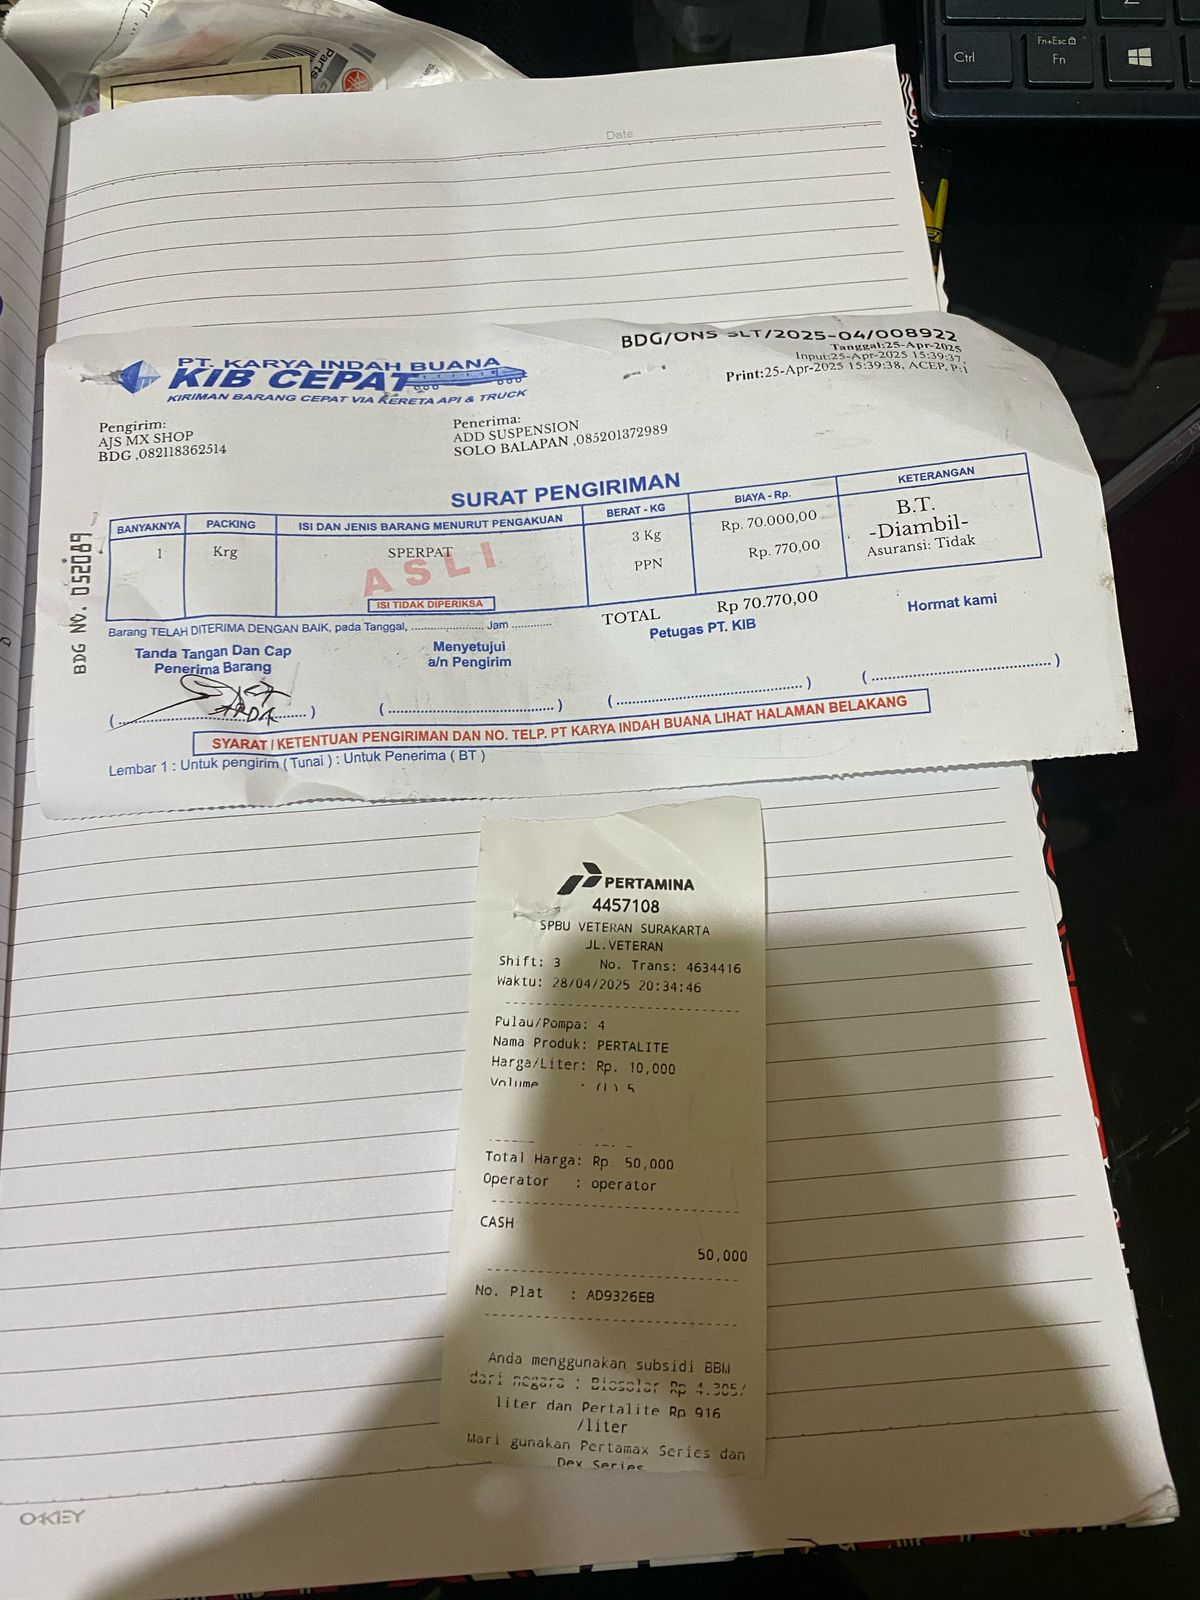 Ctrl
Fn+Esc
Fn
Parts
Date
PT. KARYA INDAH BUANA
KIB CEPAT
KIRIMAN BARANG CEPAT VIA KERETA API & TRUCK
BDG/ONS SLT/2025-04/008922
Tanggal:25-Apr-2025
Input:25-Apr-2025 15:39:37,
Print:25-Apr-2025 15:39:38, ACEP, P:1
Pengirim:
AJS MX SHOP
BDG ,082118362514
Penerima:
ADD SUSPENSION
SOLO BALAPAN ,085201372989
SURAT PENGIRIMAN
BDG No. 052089
BANYAKNYA PACKING ISI DAN JENIS BARANG MENURUT PENGAKUAN BERAT - KG BIAYA - Rp. KETERANGAN
1 Krg SPERPAT 3 Kg Rp. 70.000,00 B.T.
-Diambil-
PPN Rp. 770,00 Asuransi: Tidak
ASLI
ISI TIDAK DIPERIKSA
TOTAL Rp 70.770,00
Barang TELAH DITERIMA DENGAN BAIK, pada Tanggal, ........................ Jam .............
Tanda Tangan Dan Cap
Penerima Barang
Menyetujui
a/n Pengirim
Petugas PT. KIB
Hormat kami
SYARAT / KETENTUAN PENGIRIMAN DAN NO. TELP. PT KARYA INDAH BUANA LIHAT HALAMAN BELAKANG
Lembar 1 : Untuk pengirim ( Tunai ) : Untuk Penerima ( BT )
PERTAMINA
4457108
SPBU VETERAN SURAKARTA
JL.VETERAN
Shift: 3 No. Trans: 4634416
Waktu: 28/04/2025 20:34:46
Pulau/Pompa: 4
Nama Produk: PERTALITE
Harga/Liter: Rp. 10,000
Volume : (L) 5
Total Harga: Rp. 50,000
Operator : operator
CASH
50,000
No. Plat : AD9326EB
Anda menggunakan subsidi BBM
dari negara : Biosolar Rp 4.305/
liter dan Pertalite Rp 916
/liter
Mari gunakan Pertamax Series dan
Dex Series
OKEY